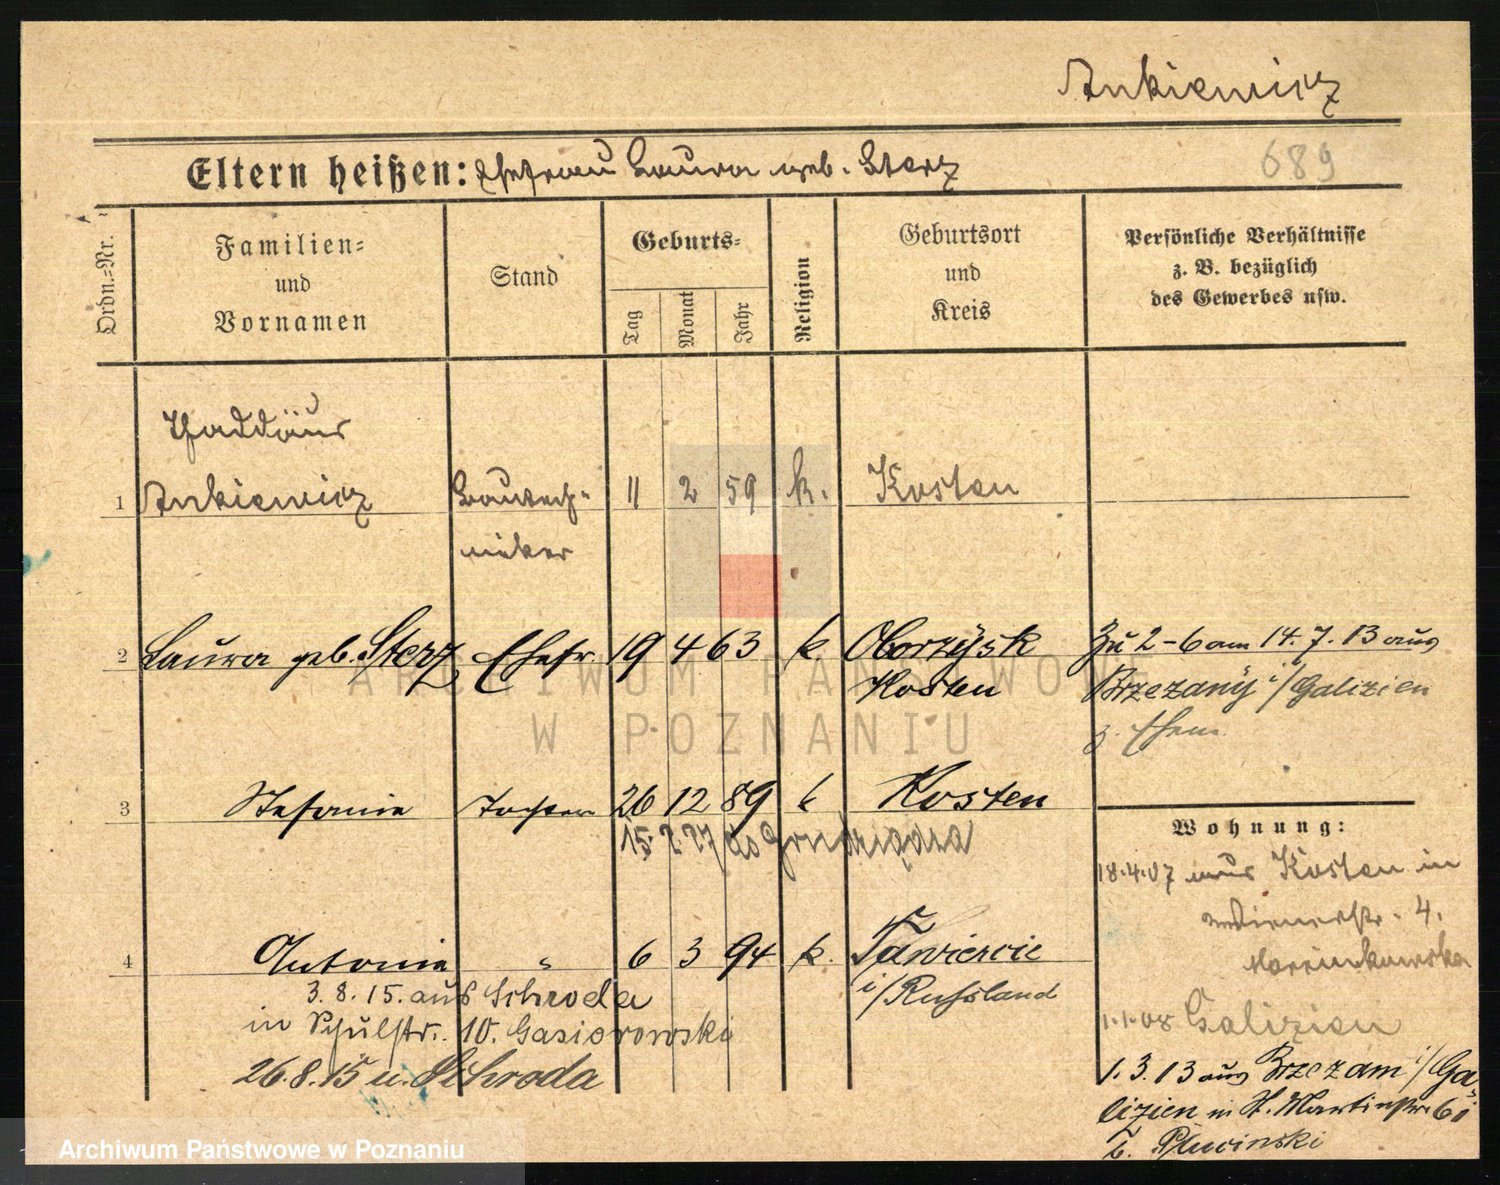 Ankiewicz
Eltern heißen: Ehefrau Laura geb. Sterz
689
Ordn.-Nr.
Familien-
und
Vornamen
Stand
Geburts-
Tag
Monat
Jahr
Religion
Geburtsort
und
Kreis
Persönliche Verhältnisse
z. B. bezüglich
des Gewerbes usw.
Thaddäus
1 Ankiewicz Bautech- 11 2 59 k. Kosten
niker
2 Laura geb. Sterz Ehefr. 19 4 63 k Oborzysk Zu 2-6 am 14.7.13 aus
Kosten Brzezany i/Galizien
z. Ehem.
3 Stefanie Tochter 26 12 89 k Kosten
15.2.27 do Grudziądza
4 Antonie " 6 3 94 k. Zawiercie
i/Russland
3.8.15. aus Schroda
in Schulstr. 10. Gasiorowski
26.8.15 n. Schroda
Wohnung:
18.4.07 aus Kosten in
Wienerstr. 4.
1.1.08 Galizien
1.3.13 aus Brzezam i/Ga-
lizien in St. Martinstr. 6 i
b. Pluciński
ARCHIWUM PAŃSTWOWE
W POZNANIU
Archiwum Państwowe w Poznaniu